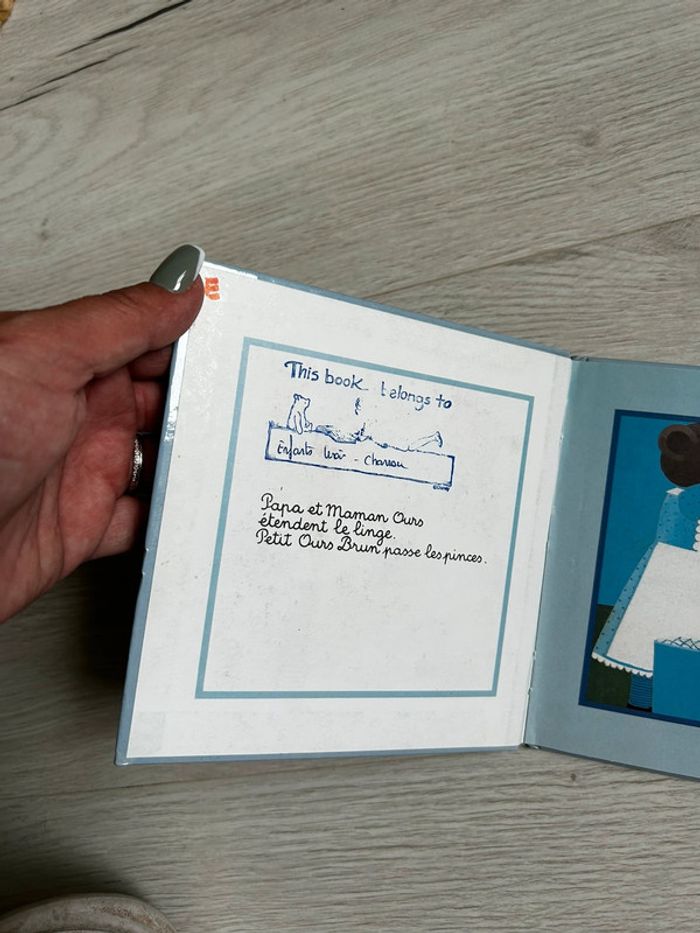 This book belongs to
Enfants - Charrou
©Disney
Papa et Maman Ours
étendent le linge.
Petit Ours Brun passe les pinces.